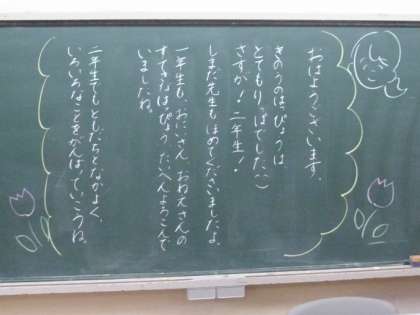 おはようございます。
きのうのはっぴょうは
とてもりっぱでした(:)
さすが!二年生!
しまだ先生もほめてくださいましたよ。
一年生も、おにいさん、おねえさんの
すてきなはっぴょう、たいへんよろこんで
いましたね。
二年生でもともだちとなかよく、
いろいろなことをがんばっていこうね。